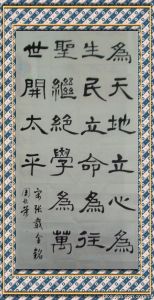 為天地立心為
生民立命為往
聖繼絕學為萬
世開太平
張載